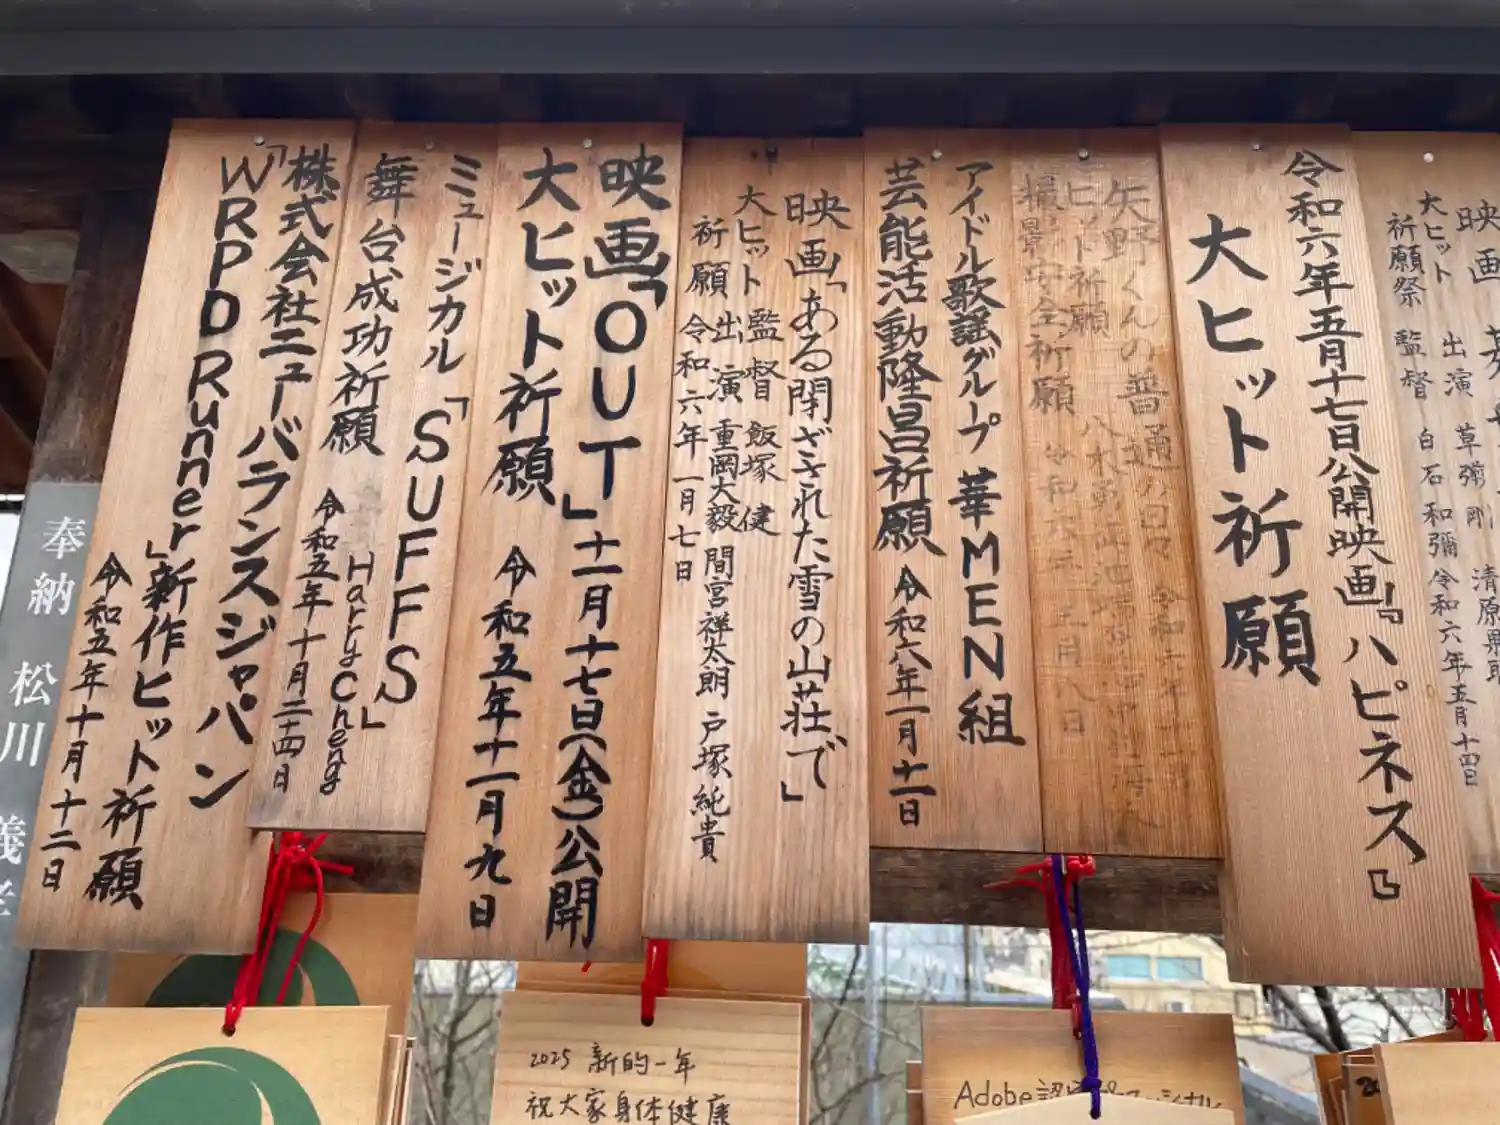 令和六年五月十七日公開映画『ハピネス』
大ヒット祈願
矢野くんの普通の日々
ヒット祈願
撮影安全祈願
アイドル歌謡グループ 華MEN組
芸能活動隆昌祈願 令和六年一月十一日
映画「ある閉ざされた雪の山荘で」
大ヒット 監督 飯塚 健
祈願 出演 重岡大毅 間宮祥太朗 戸塚純貴
令和六年一月七日
映画「OUT」十一月十七日(金)公開
大ヒット祈願 令和五年十一月九日
ミュージカル「SUFFS」
舞台成功祈願 Harry Cheng
令和五年十月二十四日
株式会社ニューバランスジャパン
「WRPD Runner」新作ヒット祈願
令和五年十月十二日
映画
大ヒット 出演 草彅 剛 清原果耶
祈願祭 監督 白石和彌 令和六年五月十四日
奉納 松川
2025 新的一年
祝大家身体健康
Adobe認定